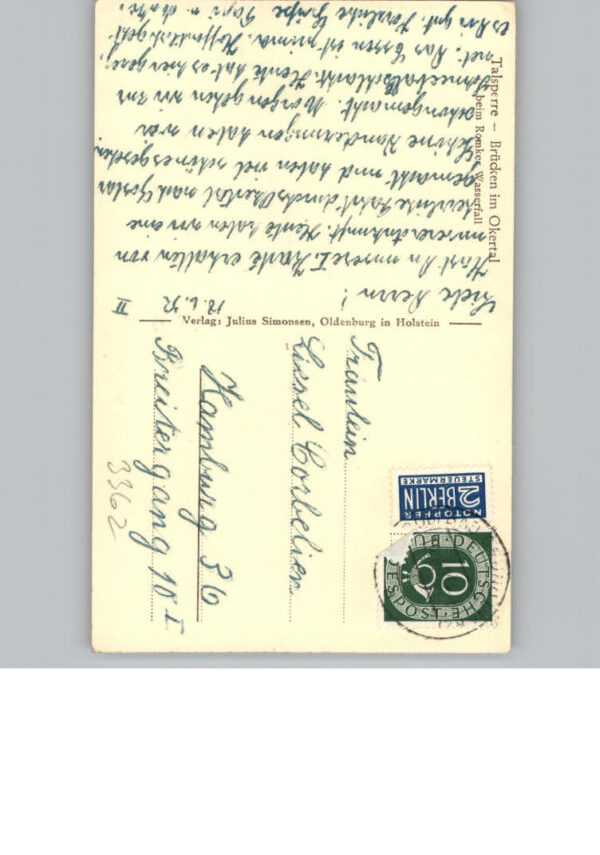 Talsperre — Brücken im Okertal
beim Romker Wasserfall
18.6.52 II
Liebe Herrn!
Hast Du unsere I. Karte erhalten von
unserer Ankunft. Heute haben wir eine
herrliche Fahrt durchs Okertal nach Goslar
gemacht und haben viel schönes gesehen.
Schöne Wanderungen haben wir
schon gemacht. Morgen gehen wir zur
Schneeballschlacht. Heute hat es hier gereg-
net. Das Essen ist prima. Hoffentlich geht
es Dir gut. Herzliche Grüße
Verlag: Julius Simonsen, Oldenburg in Holstein
Fräulein
Liesel Corbelien
Hamburg 36
Breitergang 10 I
3362
NOTOPFER
2 BERLIN
STEUERMARKE
DEUTSCHE
BUNDESPOST
10